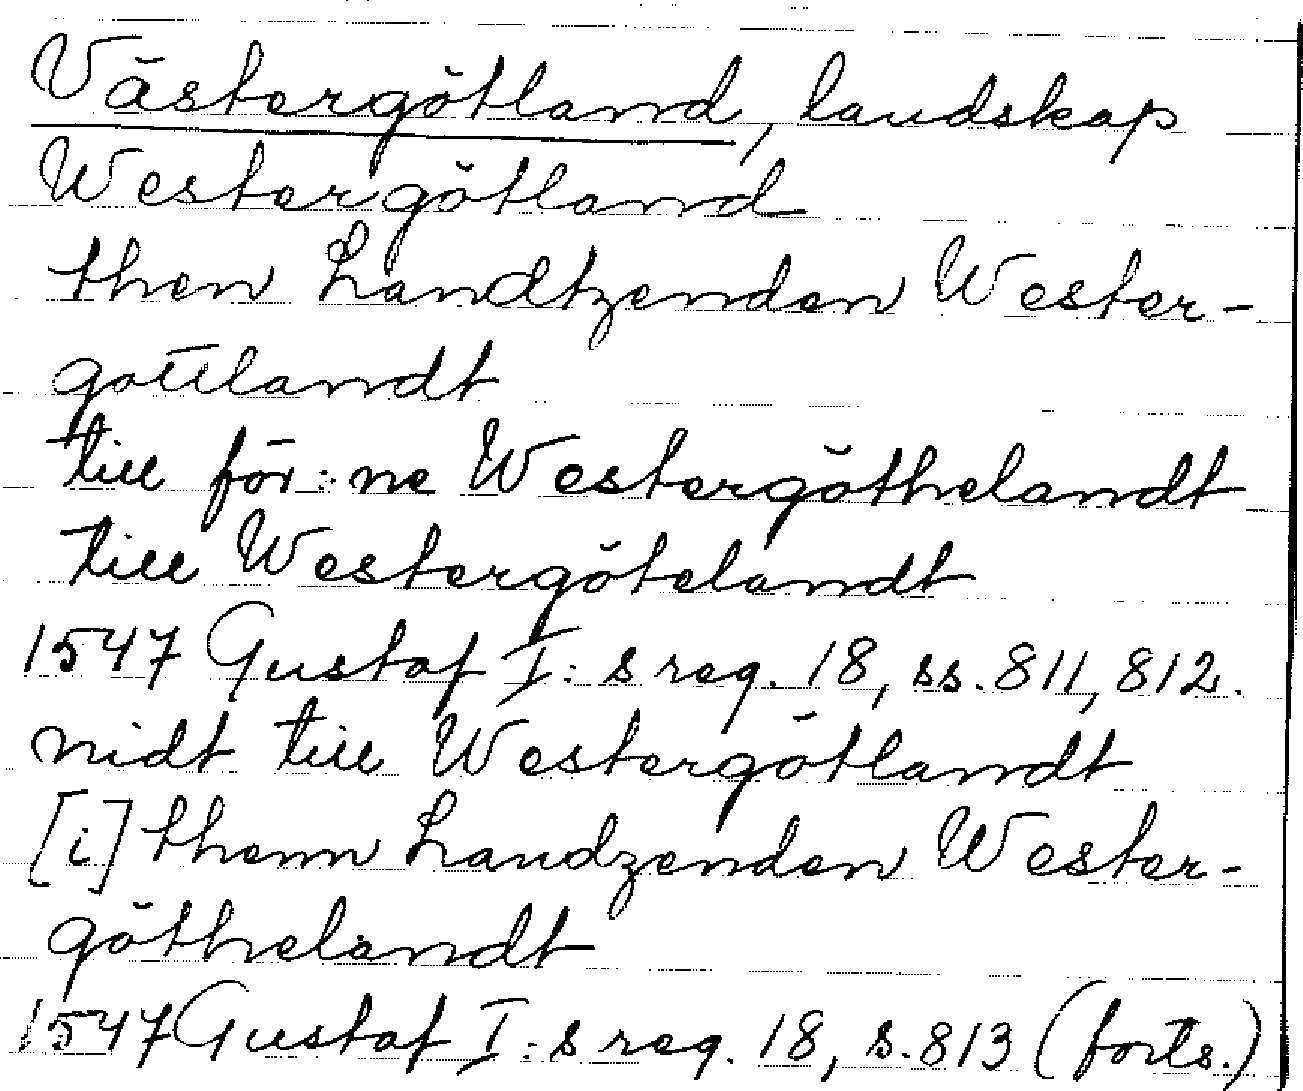 Västergötland, landskap
Westergötland
then Landtzenden Wester-
gottlandt
till för:ne Westergöthelandt
till Westergötelandt
1547 Gustaf I:s reg. 18, ss. 811, 812.
nidt till Westergötlandt
[i] thenn Landzenden Wester-
göthelandt
1547 Gustaf I:s reg. 18, s. 813 (forts.)